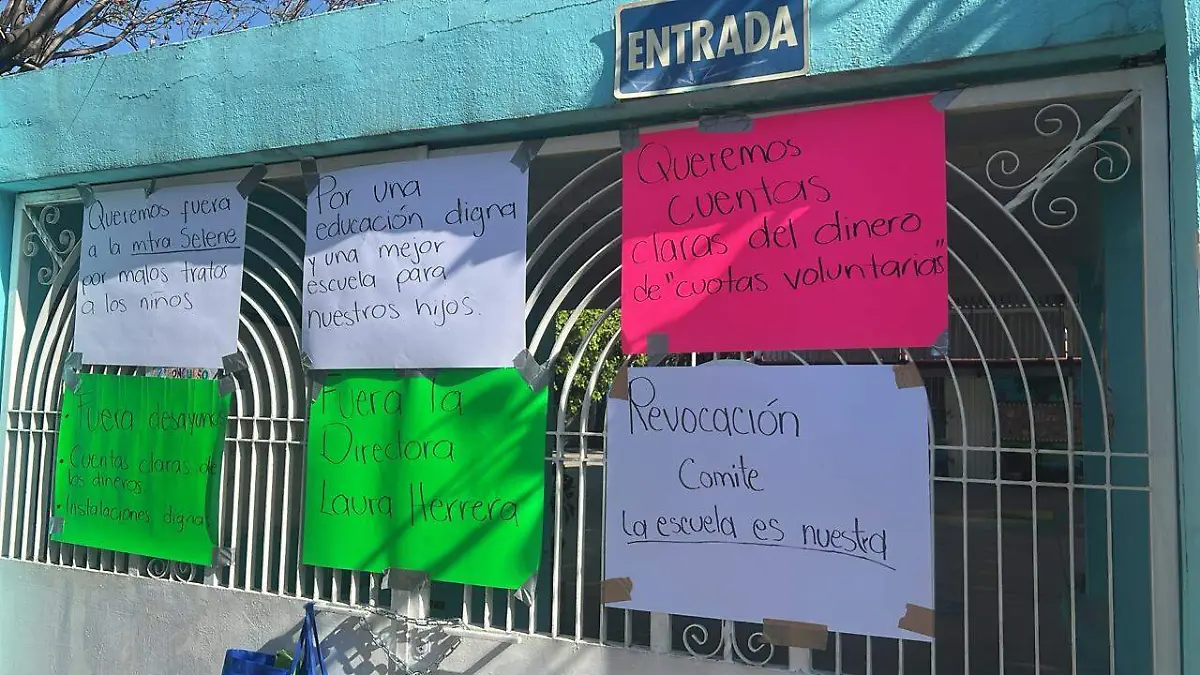 ENTRADA
Queremos fuera
a la mtra Selene
por malos tratos
a los niños
Por una
educación digna
y una mejor
escuela para
nuestros hijos.
Queremos
cuentas
claras del dinero
de "cuotas voluntarias"
• Fuera desayunos
• Cuentas claras de
los dineros
• Instalaciones dignas
Fuera la
Directora
Laura Herrera
Revocación
Comite
La escuela es nuestra